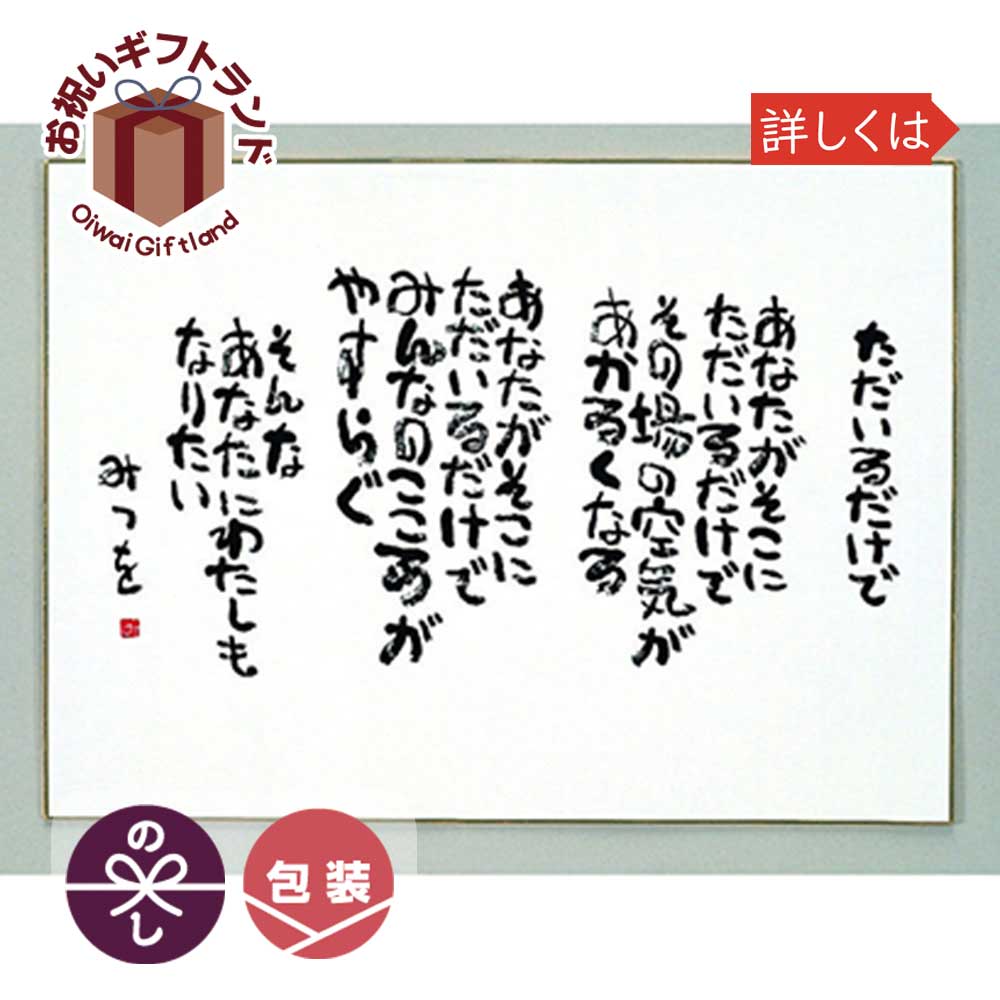 お祝いギフトランド
Oiwai Giftland
詳しくは
ただいるだけで
あなたがそこに
ただいるだけで
その場の空気が
あかるくなる
あなたがそこに
ただいるだけで
みんなのこころが
やすらぐ
そんな
あなたにわたしも
なりたい
みつを
のし
包装